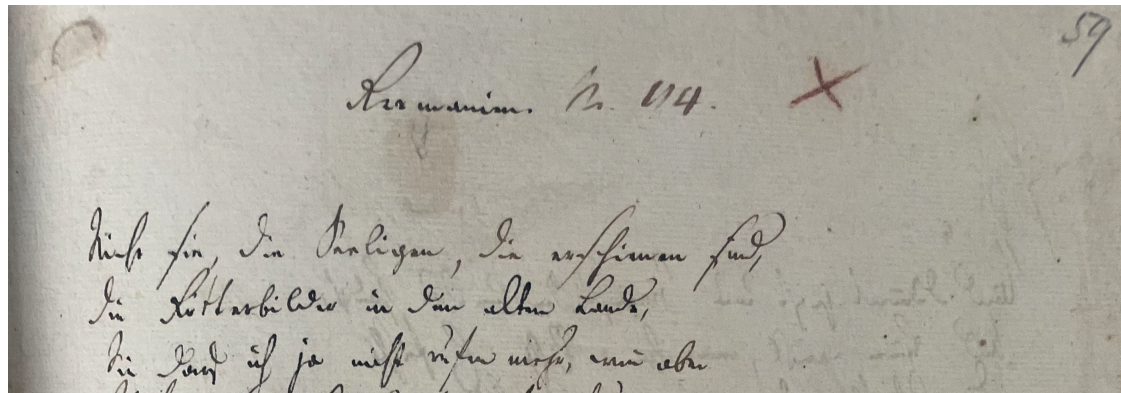 59
Germanien. N. 114.
Nicht sie, die Seeligen, die erschienen sind,
die Götterbilder in dem alten Lande,
Sie darf ich ja nicht rufen mehr, wenn aber